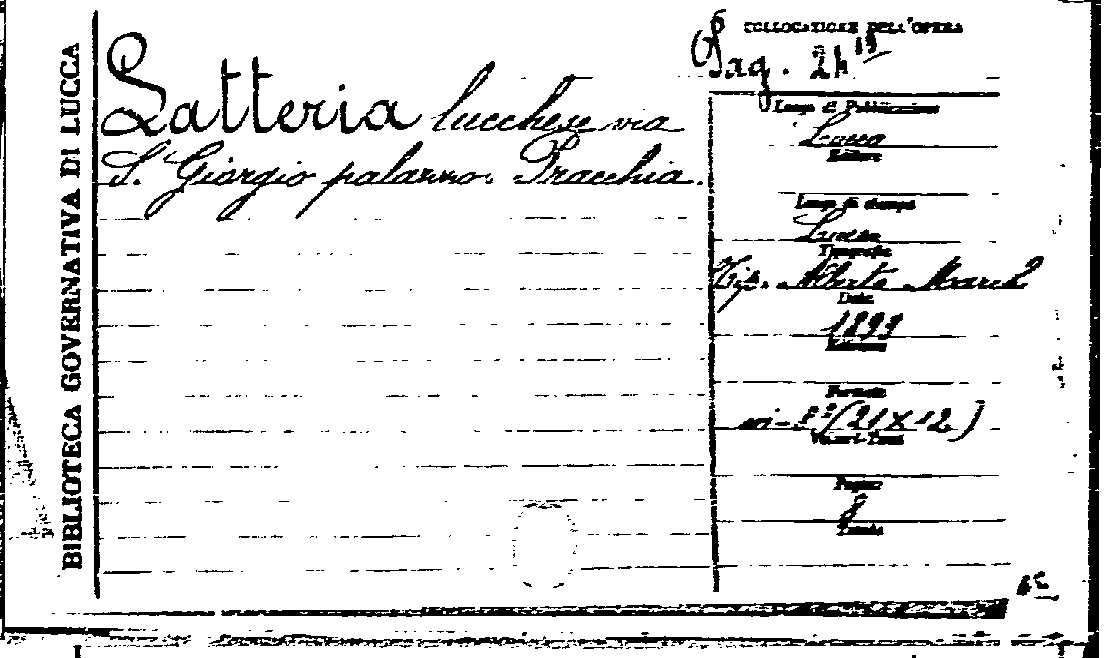 BIBLIOTECA GOVERNATIVA DI LUCCA
Latteria lucchese via
S. Giorgio palazzo. Pracchia.
COLLOCAZIONE DELL'OPERA
Pag. 24 19
Luogo di Pubblicazione
Lucca
Editore
Luogo di stampa
Lucca
Tipografia
Tip. Alberto
Data
1899
Edizione
Formato
in-8º (21 X 12)
Volumi-Tomi
Pagine
8